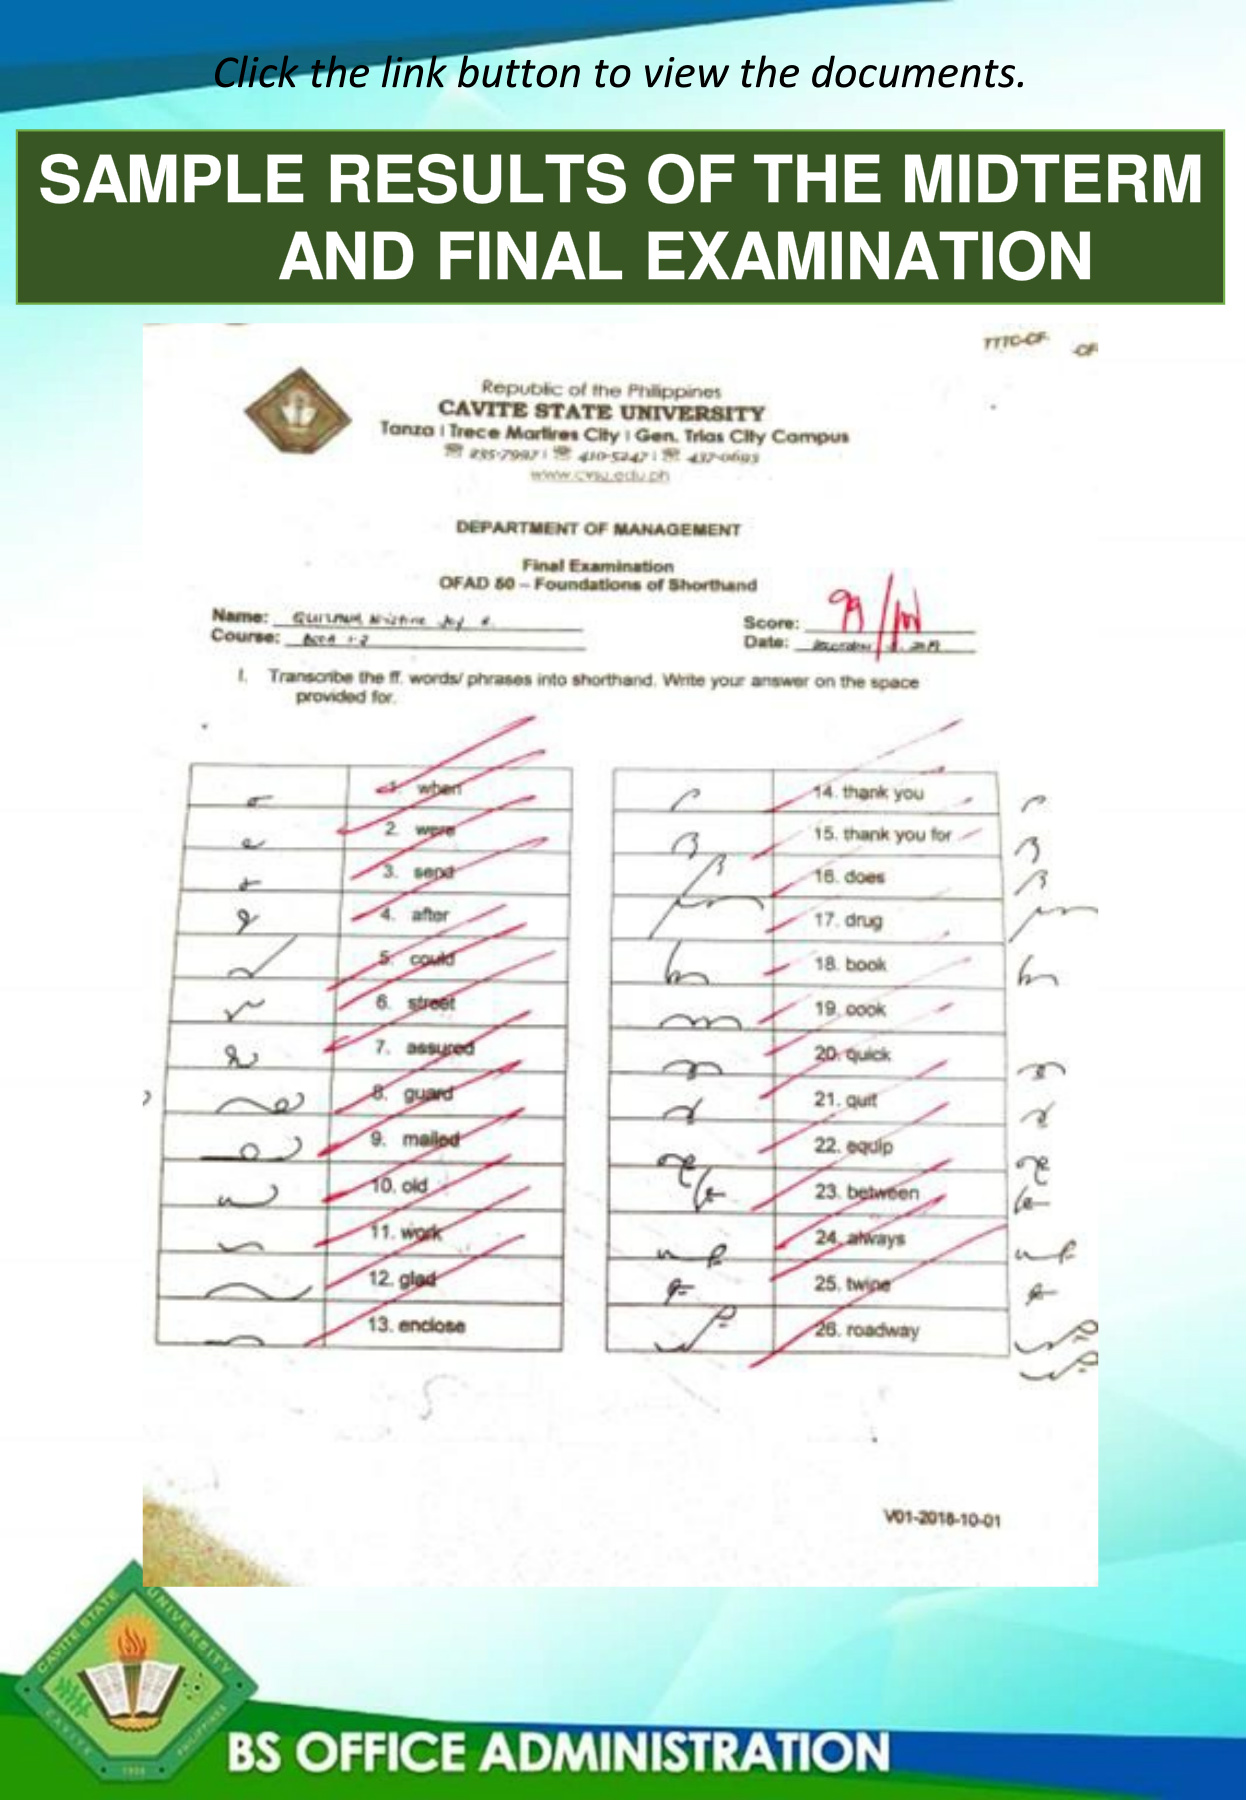 Click the link button to view the documents.
SAMPLE RESULTS OF THE MIDTERM
AND FINAL EXAMINATION
TTTC-CF
CF
Republic of the Philippines
CAVITE STATE UNIVERSITY
Tanza | Trece Martires City | Gen. Trias City Campus
☏ 235-7997 | ☏ 410-5247 | ☏ 437-0693
www.cvsu.edu.ph
DEPARTMENT OF MANAGEMENT
Final Examination
OFAD 50 – Foundations of Shorthand
Name: Joy
Score: 99/100
Course: 1-2
Date: 2019
I. Transcribe the ff. words/ phrases into shorthand. Write your answer on the space
provided for.
1. when
2. were
3. send
4. after
5. could
6. street
7. assured
8. guard
9. mailed
10. old
11. work
12. glad
13. enclose
14. thank you
15. thank you for
16. does
17. drug
18. book
19. cook
20. quick
21. quit
22. equip
23. between
24. always
25. twine
26. roadway
V01-2018-10-01
CAVITE STATE UNIVERSITY
CAVITE
PHILIPPINES
1906
BS OFFICE ADMINISTRATION